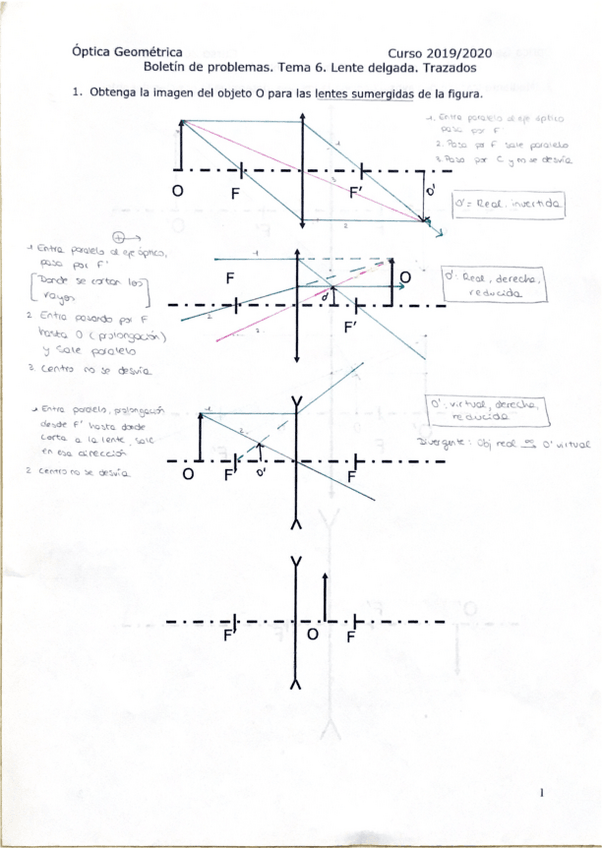 Óptica Geométrica Curso 2019/2020
Boletín de problemas. Tema 6. Lente delgada. Trazados
1. Obtenga la imagen del objeto O para las lentes sumergidas de la figura.
1. Entra paralelo al eje óptico
pasa por F'
2. Pasa por F sale paralelo
3. Pasa por C y no se desvía
1
3
2
O F F' O'
O' = Real, invertida
1 Entra paralelo al eje óptico,
pasa por F'
[Donde se cortan los
rayos]
2 Entra pasando por F
hasta O (prolongación)
y sale paralelo
3. Centro no se desvía
1
2
3
F O
O'
F'
O': Real, derecha,
reducida
1 Entra paralelo, prolongación
desde F' hasta donde
corta a la lente, sale
en esa dirección
2 Centro no se desvía
1
2
O F' O' F
O': virtual, derecha,
reducida
Divergente: Obj real ⇒ O' virtual
F' O F
1